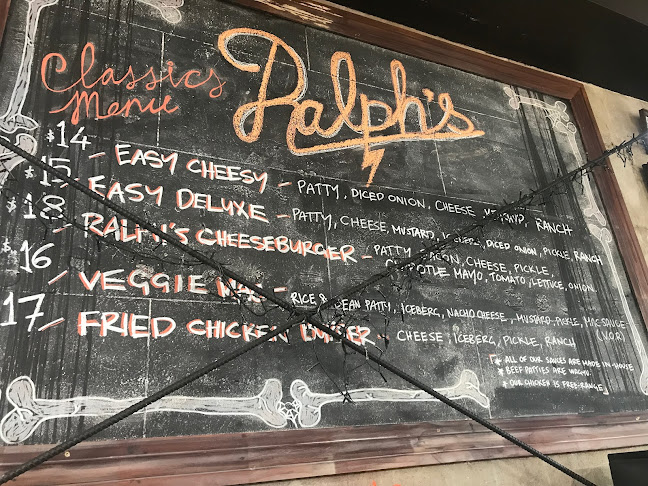 Classics
Menu
Ralph's
$14 - EASY CHEESY - PATTY, DICED ONION, CHEESE, RANCH
$15 - EASY DELUXE - PATTY, CHEESE, MUSTARD, DICED ONION, PICKLE, RANCH
$18 - RALPH'S CHEESEBURGER - PATTY, BACON, CHEESE, PICKLE,
CHIPOTLE MAYO, TOMATO, LETTUCE, ONION
$16 - VEGGIE - RICE & BEAN PATTY, ICEBERG, NACHO CHEESE, MUSTARD, PICKLE, MAC SAUCE
17 - FRIED CHICKEN - CHEESE, ICEBERG, PICKLE, RANCH
* ALL OF OUR SAUCES ARE MADE IN-HOUSE
* BEEF PATTIES ARE WAGYU
* OUR CHICKEN IS FREE-RANGE